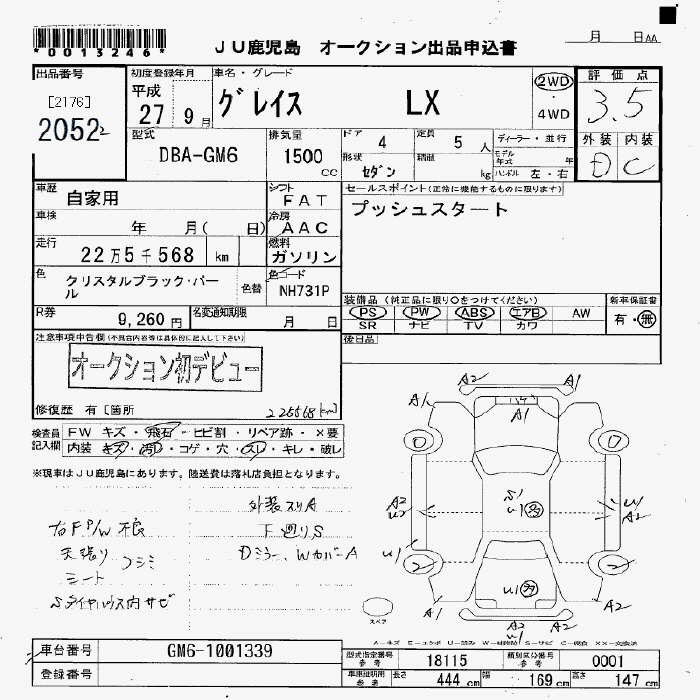 *0013246*
JU鹿児島 オークション出品申込書
月 日AA
出品番号
[2176]
2052 2
初度登録年月
平成
27 9月
車名・グレード
グレイス LX
2WD
・
4WD
評価点
3.5
外装 内装
D C
型式
DBA-GM6
排気量
1500 cc
ドア 4
定員 5 人
ディーラー・並行
形状 セダン
積載 kg
モデル年式 年
ハンドル 左・右
車歴
自家用
シフト
FAT
車検
年 月( 日)
冷房
AAC
走行
22万5千568 km
燃料
ガソリン
色
クリスタルブラック・パール
色替
色コード
NH731P
R券
9,260円
名変通知期限
月 日
セールスポイント(正常に機能するものに限ります)
プッシュスタート
装備品(純正品に限り○をつけてください)
PS PW ABS エアB AW
SR ナビ TV カワ
新車保証書
有・無
後日品
注意事項申告欄(不具合内容等は具体的に記入して下さい)
オークション初デビュー
修復歴 有[箇所
225568km]
検査員記入欄
FW キズ・飛石・ヒビ割・リペア跡・×要
内装 キズ・汚レ・コゲ・穴・スレ・キレ・破レ
※現車はJU鹿児島にあります。陸送費は落札店負担となります。
外装スリA
右F.P/W不良
下廻りS
天張り シミ
Dミラー、WカバーA
シート
Sタイヤハウス内サビ
A2 A1
A1 A1 A1
0 0
S1
A2 U1
U2 A2
U1
2 2
U1
A1 A2
A2
W1
スペア
A―キズ E―エクボ U―凹み W―補修跡 S―サビ C―腐食 XX―交換済
車台番号
GM6-1001339
登録番号
型式指定番号 参考 18115
類別区分番号 参考 0001
車庫証明用 参考 長さ 444 cm 幅 169 cm 高さ 147 cm